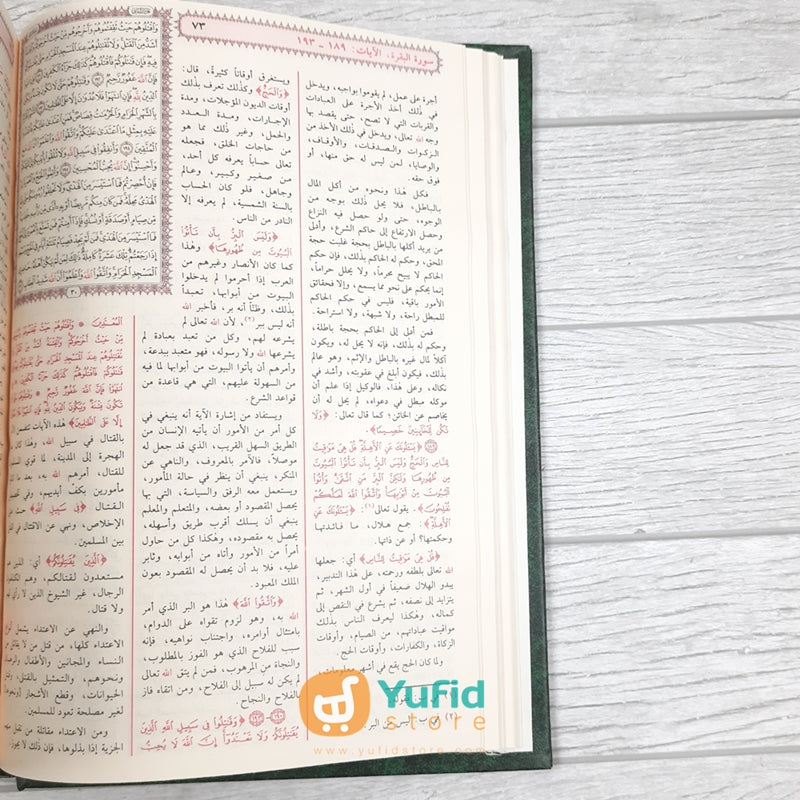 سورة البقرة، الآيات: ١٨٩ - ١٩٣
٧٣
أجرة على عمل، لم يقوموا بواجبه، ويدخل
في ذلك أخذ الأجرة على العبادات
والقربات التي لا تصح، حتى يقصد بها
وجه الله تعالى، ويدخل في ذلك الأخذ من
الزكوات والصدقات، والأوقاف،
والوصايا، لمن ليس له حق منها، أو
فوق حقه.
فكل هذا ونحوه من أكل المال
بالباطل، فلا يحل ذلك بوجه من
الوجوه، حتى ولو حصل فيه النزاع
وحصل الارتفاع إلى حاكم الشرع، وأدلى
من يريد أكلها بالباطل بحجة غلبت حجة
المحق، وحكم له الحاكم بذلك، فإن حكم
الحاكم لا يبيح محرماً، ولا يحلل حراماً،
إنما يحكم على نحو مما يسمع، وإلا فحقائق
الأمور باقية، فليس في حكم الحاكم
للمبطل راحة، ولا شبهة، ولا استراحة.
فمن أدلى إلى الحاكم بحجة باطلة،
وحكم له بذلك، فإنه لا يحل له، ويكون
آكلاً لمال غيره بالباطل والإثم، وهو عالم
بذلك، فيكون أبلغ في عقوبته، وأشد في
نكاله، وعلى هذا، فالوكيل إذا علم أن
موكله مبطل في دعواه، لم يحل له أن
يخاصم عن الخائن؛ كما قال تعالى: ﴿ولا
تكن للخائنين خصيما﴾.
﴿يسئلونك عن الأهلة قل هي مواقيت
للناس والحج وليس البر بأن تأتوا البيوت
من ظهورها ولكن البر من اتقى وأتوا
البيوت من أبوابها واتقوا الله لعلكم
تفلحون﴾. يقول تعالى(١): ﴿يسئلونك عن
الأهلة﴾: جمع هلال، ما فائدتها
وحكمتها؟ أو عن ذاتها.
﴿قل هي مواقيت للناس﴾ أي: جعلها
الله تعالى بلطفه ورحمته، على هذا التدبير،
يبدو الهلال ضعيفاً في أول الشهر، ثم
يتزايد إلى نصفه، ثم يشرع في النقص إلى
كماله، وهكذا ليعرف الناس بذلك
مواقيت عباداتهم، من الصيام، وأوقات
الزكاة، والكفارات، وأوقات الحج.
ولما كان الحج يقع في أشهر معلومات،
ويستغرق أوقاتاً كثيرة، قال:
﴿والحج﴾ وكذلك تعرف بذلك
أوقات الديون المؤجلات، ومدة
الإجارات، ومدة العدد
والحمل، وغير ذلك مما هو
من حاجات الخلق، فجعله
تعالى حساباً يعرفه كل أحد،
من صغير وكبير، وعالم
وجاهل، فلو كان الحساب
بالسنة الشمسية، لم يعرفه إلا
النادر من الناس.
﴿وليس البر بأن تأتوا
البيوت من ظهورها﴾ وهذا
كما كان الأنصار وغيرهم من
العرب إذا أحرموا لم يدخلوا
البيوت من أبوابها، تعبداً
بذلك، وظناً أنه بر، فأخبر الله
أنه ليس ببر(٢)، لأن الله تعالى لم
يشرعه لهم، وكل من تعبد بعبادة لم
يشرعها الله ولا رسوله، فهو متعبد ببدعة،
وأمرهم أن يأتوا البيوت من أبوابها لما فيه
من السهولة عليهم، التي هي قاعدة من
قواعد الشرع.
ويستفاد من إشارة الآية أنه ينبغي في
كل أمر من الأمور أن يأتيه الإنسان من
الطريق السهل القريب، الذي قد جعل له
موصلاً، فالآمر بالمعروف، والناهي عن
المنكر، ينبغي أن ينظر في حالة المأمور،
ويستعمل معه الرفق والسياسة، التي بها
يحصل المقصود أو بعضه، والمتعلم والمعلم
ينبغي أن يسلك أقرب طريق وأسهله،
يحصل به مقصوده، وهكذا كل من حاول
أمراً من الأمور وأتاه من أبوابه، وثابر
عليه، فلا بد أن يحصل له المقصود بعون
الملك المعبود.
﴿واتقوا الله﴾ هذا هو البر الذي أمر
الله به، وهو لزوم تقواه على الدوام،
بامتثال أوامره، واجتناب نواهيه، فإنه
سبب للفلاح الذي هو الفوز بالمطلوب،
والنجاة من المرهوب، فمن لم يتق الله تعالى
لم يكن له سبيل إلى الفلاح، ومن اتقاه فاز
بالفلاح والنجاح.
﴿وقاتلوا في سبيل الله الذين
يقاتلونكم ولا تعتدوا إن الله لا يحب
بالقتال في سبيل الله، وهذا كان
الهجرة إلى المدينة، لما قوي
للقتال، أمرهم الله به، بعد
مأمورين بكف أيديهم، وفي
القتال ﴿في سبيل الله﴾ حث
الإخلاص، ونهي عن الاقتتال في
بين المسلمين.
﴿الذين يقاتلونكم﴾ أي: الذين
مستعدون لقتالكم، وهم
الرجال، غير الشيوخ الذين لا رأي
ولا قتال.
والنهي عن الاعتداء يشمل أنواع
الاعتداء كلها، من قتل من لا
النساء والمجانين والأطفال
ونحوهم، والتمثيل بالقتلى،
الحيوانات، وقطع الأشجار
لغير مصلحة تعود للمسلمين.
ومن الاعتداء مقاتلة من تقبل
الجزية إذا بذلوها، فإن ذلك لا
Yufid
store
www.yufidstore.com